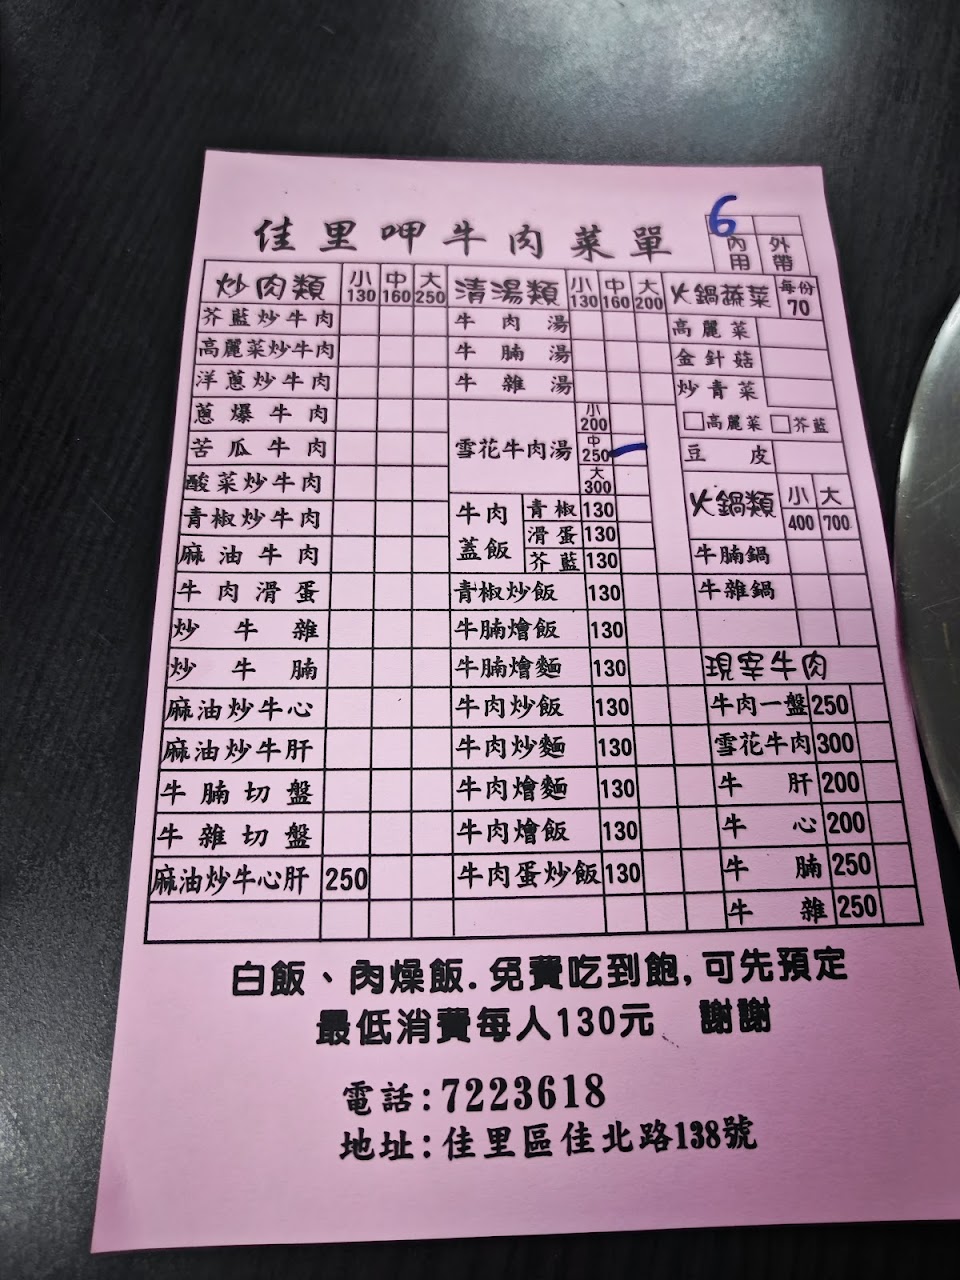 佳里呷牛肉菜單
6
內用 外帶
炒肉類 小130 中160 大250
芥藍炒牛肉
高麗菜炒牛肉
洋蔥炒牛肉
蔥爆牛肉
苦瓜牛肉
酸菜炒牛肉
青椒炒牛肉
麻油牛肉
牛肉滑蛋
炒牛雜
炒牛腩
麻油炒牛心
麻油炒牛肝
牛腩切盤
牛雜切盤
麻油炒牛心肝 250
清湯類 小130 中160 大200
牛肉湯
牛腩湯
牛雜湯
雪花牛肉湯 小200 中250 大300
牛肉蓋飯 青椒 130
滑蛋 130
芥藍 130
青椒炒飯 130
牛腩燴飯 130
牛腩燴麵 130
牛肉炒飯 130
牛肉炒麵 130
牛肉燴麵 130
牛肉燴飯 130
牛肉蛋炒飯 130
火鍋蔬菜 每份70
高麗菜
金針菇
炒青菜
□高麗菜 □芥藍
豆皮
火鍋類 小400 大700
牛腩鍋
牛雜鍋
現宰牛肉
牛肉一盤 250
雪花牛肉 300
牛肝 200
牛心 200
牛腩 250
牛雜 250
白飯、肉燥飯.免費吃到飽,可先預定
最低消費每人130元 謝謝
電話:7223618
地址:佳里區佳北路138號